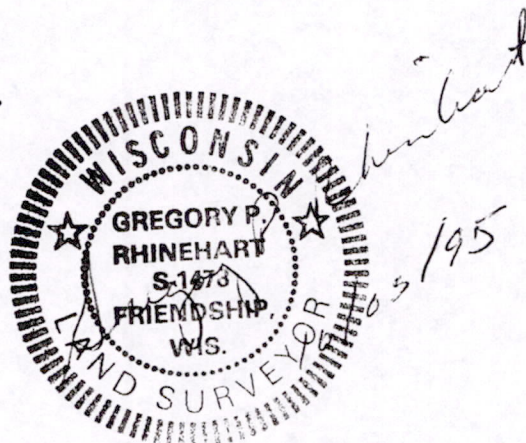 WISCONSIN
GREGORY P.
RHINEHART
S-1473
FRIENDSHIP,
WIS.
LAND SURVEYOR